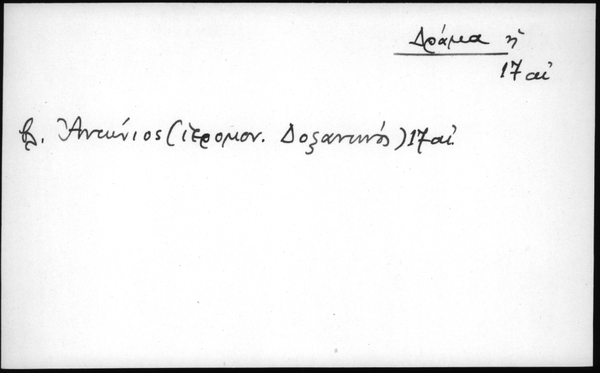 Δράμα ἡ
17 αἰ
β. Ἀντώνιος (ἱερομον. Δοξαντινός) 17 αἰ.